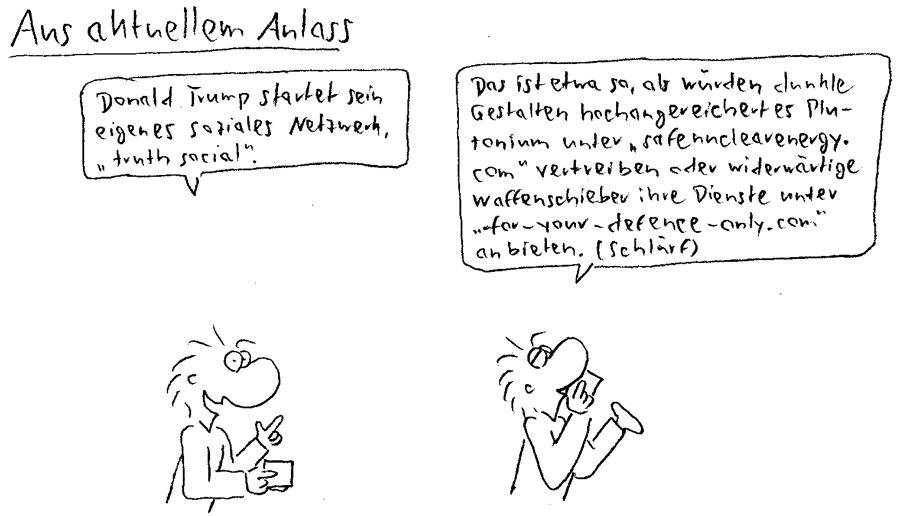 Aus aktuellem Anlass
Donald Trump startet sein
eigenes soziales Netzwerk,
„truth social“.
Das ist etwa so, als würden dunkle
Gestalten hochangereichertes Plu-
tonium unter „safenuclearenergy.
com“ vertreiben oder widerwärtige
Waffenschieber ihre Dienste unter
„for-your-defence-only.com“
anbieten. (Schlürf)